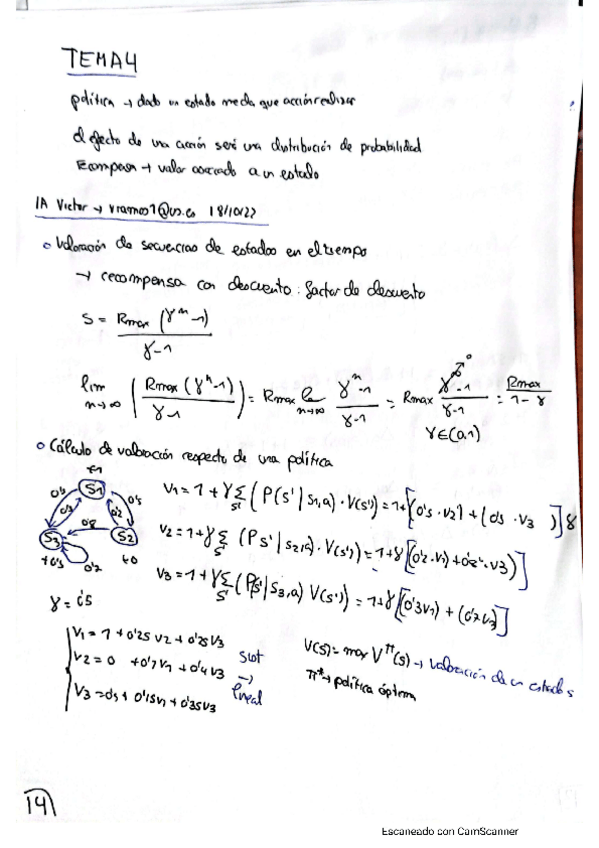 TEMA 4
política → dado un estado me da que acción realizar
el efecto de una acción será una distribución de probabilidad
Recompensa → valor asociado a un estado
IA Victor → vramos1@us.es 18/10/22
o Valoración de secuencias de estados en el tiempo
→ recompensa con descuento: factor de descuento
S = Rmax (γ^n - 1) / γ - 1
lim n→∞ ( Rmax (γ^n - 1) / γ - 1 ) = Rmax lim n→∞ γ^n - 1 / γ - 1 = Rmax γ^∞ - 1 / γ - 1 = Rmax / 1 - γ
0
γ ∈ (0,1)
o Cálculo de valoración respecto de una política
+1
S1
0'5 0'3 0'2 0'5
0'8
S3 S2
+0'5 0'7 +0
V1 = 1 + γ Σ s' (P(s' | s1, a) · V(s')) = 1 + [(0'5 · V2) + (0'5 · V3)] γ
V2 = 1 + γ Σ s' (P s' | s2, a) · V(s')) = 1 + γ [(0'2 · V1) + 0'8 · V3)]
V3 = 1 + γ Σ s' (P(s' | s3, a) V(s')) = 1 + γ [(0'3 V1) + (0'7 V3)]
γ = 0'5
V1 = 1 + 0'25 V2 + 0'25 V3
V2 = 0 + 0'1 V1 + 0'4 V3
V3 = 0'5 + 0'15 V1 + 0'35 V3
Sist → lineal
V(s) = max V^π(s) → valoración de un estado s
π* → política óptima
14
Escaneado con CamScanner